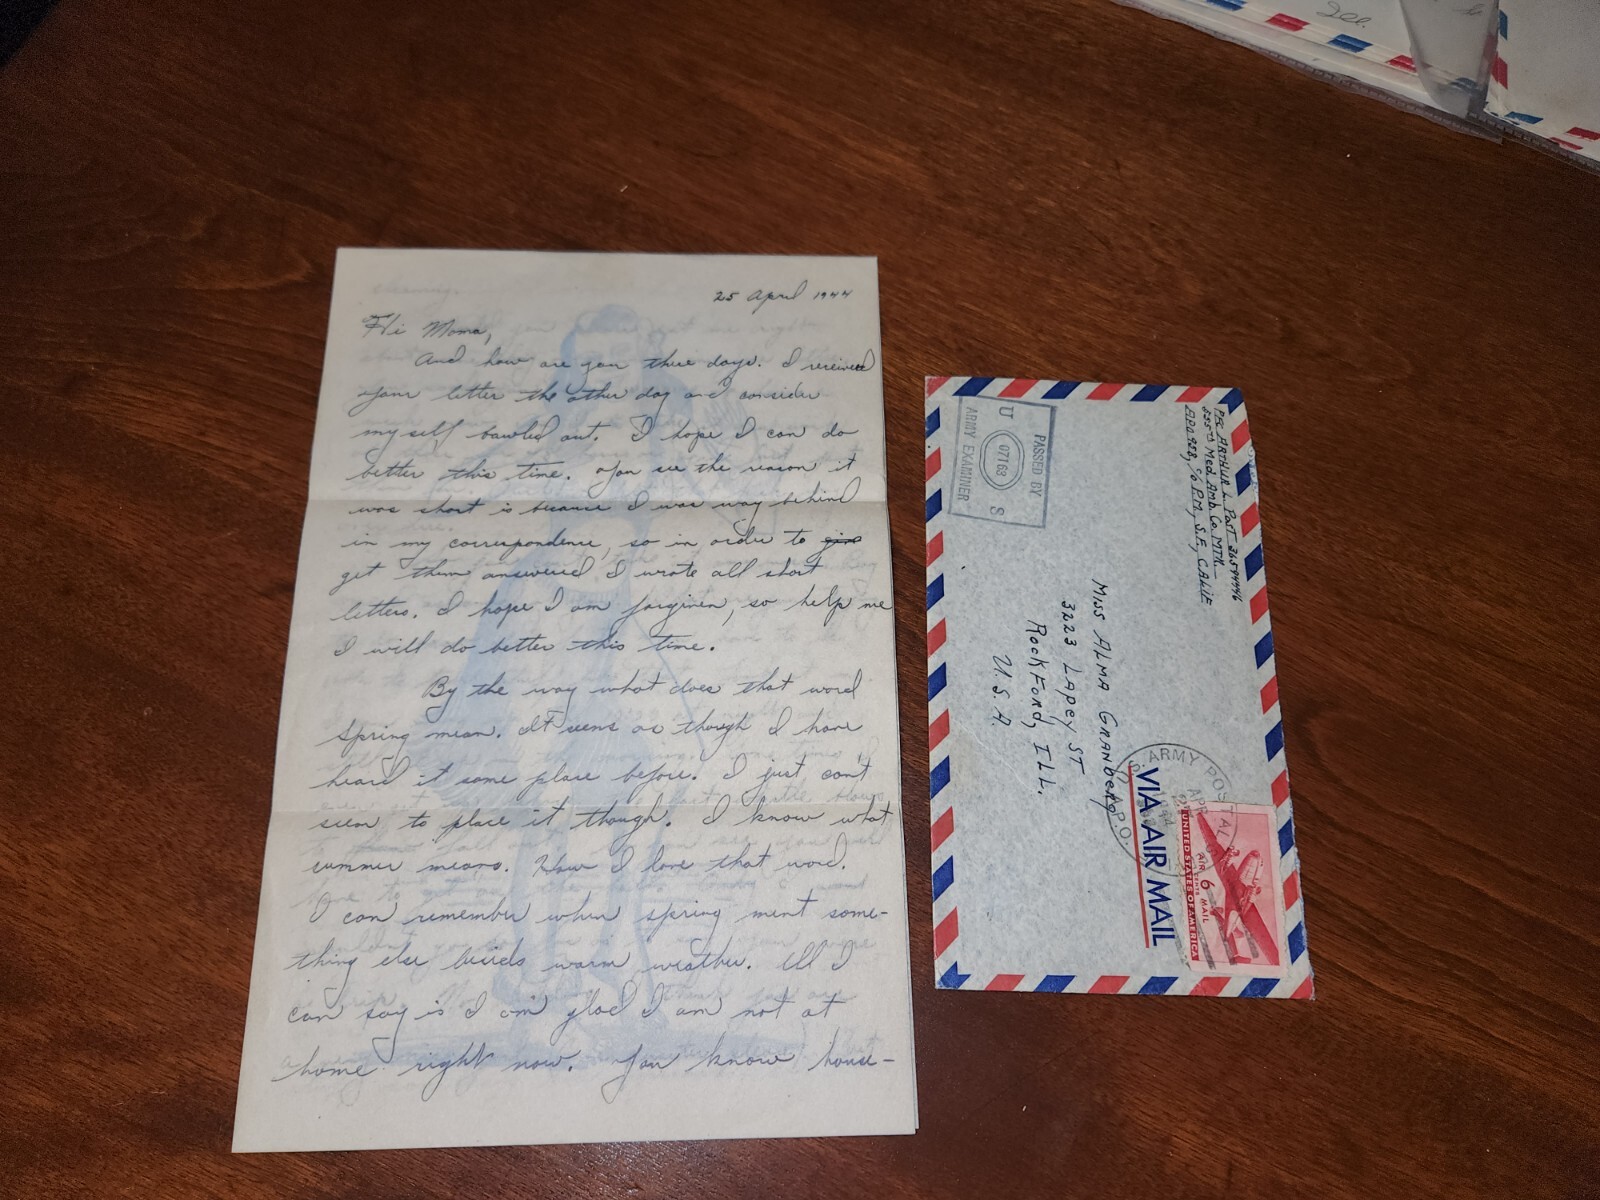 25 April 1944
Hi Moma,
And how are you these days. I received
your letter the other day and consider
myself bawled out. I hope I can do
better this time. You see the reason it
was short is because I was way behind
in my correspondence, so in order to
get them answered I wrote all short
letters. I hope I am forgiven, so help me
I will do better this time.
By the way what does that word
spring mean. It seems as though I have
heard it some place before. I just can't
seem to place it though. I know what
summer means. How I love that word.
I can remember when spring ment some-
thing else besids warm weather. All I
can say is I am glad I am not at
home right now. You know house-
Pfc ARTHUR L. Post 36594446
Med. Amb. Co. MTR.
APO 928, c/o P.M., S.F., CALIF
PASSED BY
U 07163 S
ARMY EXAMINER
MISS ALMA GRANBERG
3223 LAPEY ST
ROCKFORD, ILL.
U.S.A.
ARMY POSTAL
A.P.O.
APR
1944
VIA AIR MAIL
UNITED STATES OF AMERICA
AIR 6 CENTS MAIL
Ill.